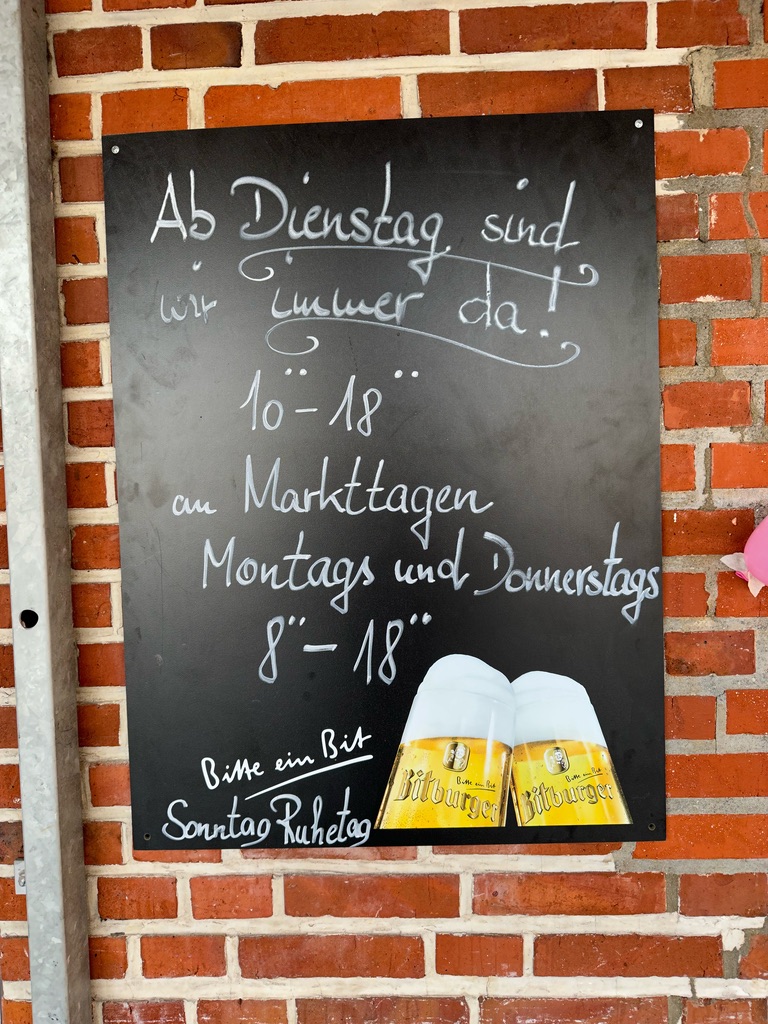 Ab Dienstag sind
wir immer da!
10°° - 18°°
an Markttagen
Montags und Donnerstags
8°° - 18°°
Bitte ein Bit
Sonntag Ruhetag
Bitte ein Bit
Bitburger
Bitte ein Bit
Bitburger